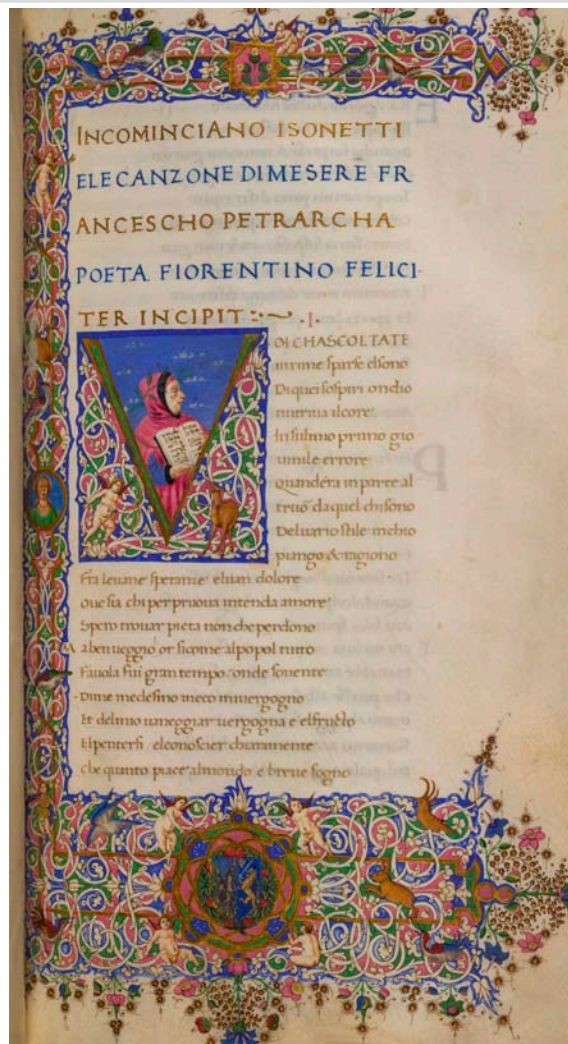 INCOMINCIANO ISONETTI
ELE CANZONE DIMESERE FR
ANCESCHO PETRARCHA
POETA FIORENTINO FELICI-
TER INCIPIT:~ .I.
VOI CHASCOLTATE
in rime sparse elsono
Di quei sospiri ondio
nutriua il core:
In sulmio primo gio
uenile errore
Quandera in parte al
truo da quel chi sono
Del uario stile in chio
piango & ragiono
Fra leuane speranze eluan dolore
oue sia chi per pruoua intenda amore:
Spero trouar pieta non che perdono
Ma ben ueggio or sicome al popol tutto
Fauola fui gran tempo: onde souente
Dime medesmo meco miuergogno
Et delmio uaneggiar uergogna e elfructo
Elpentersi elconoscier chiaramente
Che quanto piace almondo e breue sogno